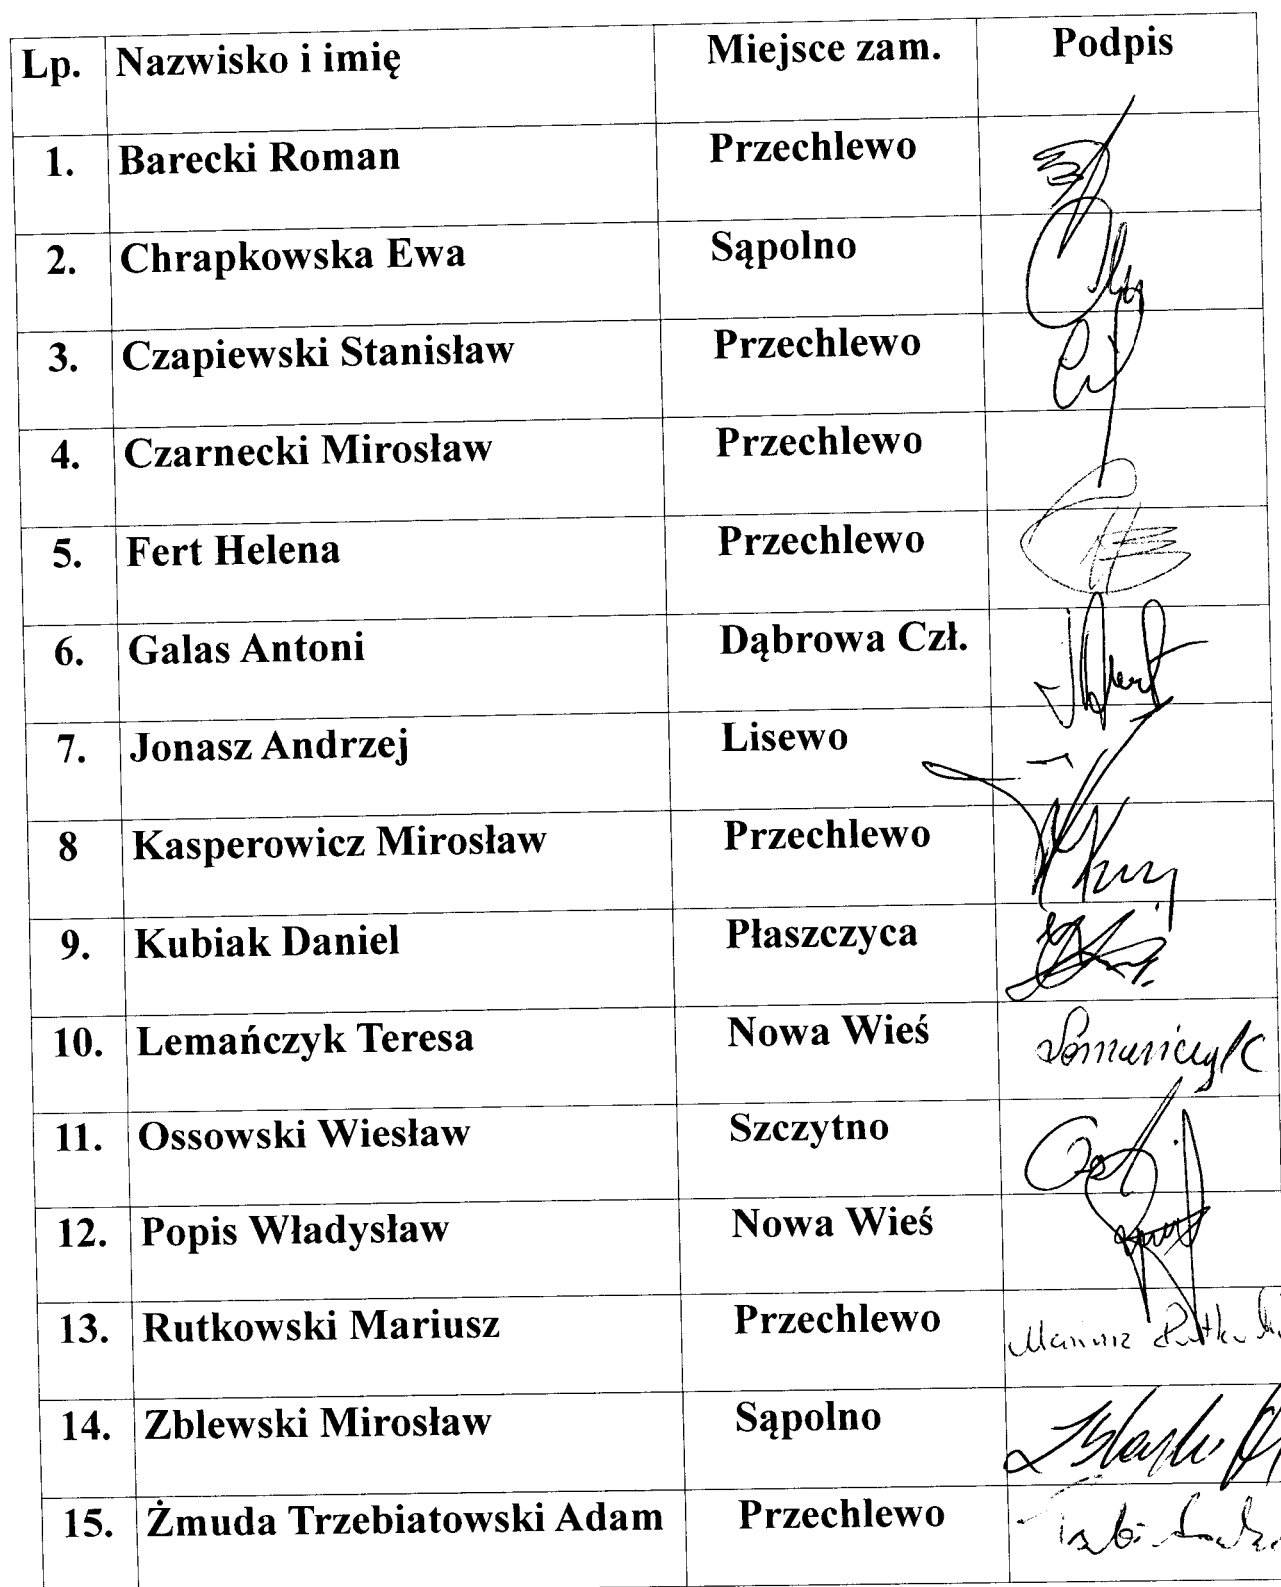 Lp. Nazwisko i imię Miejsce zam. Podpis
1. Barecki Roman Przechlewo
2. Chrapkowska Ewa Sąpolno
3. Czapiewski Stanisław Przechlewo
4. Czarnecki Mirosław Przechlewo
5. Fert Helena Przechlewo
6. Galas Antoni Dąbrowa Czł.
7. Jonasz Andrzej Lisewo
8 Kasperowicz Mirosław Przechlewo
9. Kubiak Daniel Płaszczyca
10. Lemańczyk Teresa Nowa Wieś Lemańczyk
11. Ossowski Wiesław Szczytno
12. Popis Władysław Nowa Wieś
13. Rutkowski Mariusz Przechlewo Mariusz
14. Zblewski Mirosław Sąpolno
15. Żmuda Trzebiatowski Adam Przechlewo